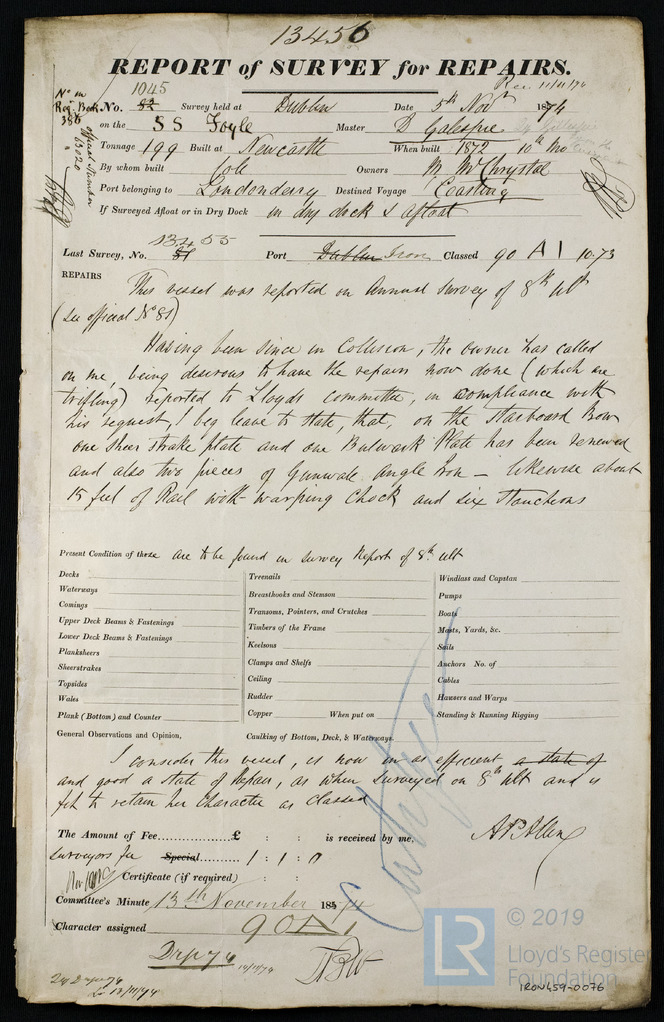 13456
REPORT of SURVEY for REPAIRS.
Rec 11/11/74
No in Reg. Book 386
1045
No. 82 Survey held at Dublin Date 5th Novr 1874
on the SS Foyle Master D Galespie
Tonnage 199 Built at Newcastle When built 1872 10th Mo
official Number 13020
By whom built Cole Owners M McChrystal
Port belonging to Londonderry Destined Voyage Coasting
If Surveyed Afloat or in Dry Dock in dry dock & afloat
13455
Last Survey, No. 81 Port Dublin Iron Classed 90 A 1 10.73
REPAIRS
This vessel was reported on Annual Survey of 8th ult
(see official No 81)
Having been since in Collision, the owner has called
on me, being desirous to have the repairs now done (which are
trifling) reported to Lloyds Committee, in compliance with
his request, I beg leave to state that, on the Starboard Bow
one sheer strake plate and one Bulwark Plate has been renewed
and also two pieces of Gunwale Angle Iron – likewise about
15 feet of Rail with warping Chock and six Stanchions
Present Condition of those are to be found in survey Report of 8th ult
Decks
Waterways
Comings
Upper Deck Beams & Fastenings
Lower Deck Beams & Fastenings
Planksheers
Sheerstrakes
Topsides
Wales
Plank (Bottom) and Counter
Treenails
Breasthooks and Stemson
Transoms, Pointers, and Crutches
Timbers of the Frame
Keelsons
Clamps and Shelfs
Ceiling
Rudder
Copper When put on
Windlass and Capstan
Pumps
Boats
Masts, Yards, &c.
Sails
Anchors No. of
Cables
Hawsers and Warps
Standing & Running Rigging
General Observations and Opinion, Caulking of Bottom, Deck, & Waterways
I consider this vessel, is now in as efficient a state of
and good a state of Repair, as when surveyed on 8th ult and is
fit to retain her Character as Classed
The Amount of Fee £ : : is received by me,
Surveyors fee Special 1 : 1 : 0
Certificate (if required) : :
Committee's Minute 13th November 1874
Character assigned 90 A 1
13/11/74
© 2019
LR
Lloyd's Register
Foundation
IRON459-0076